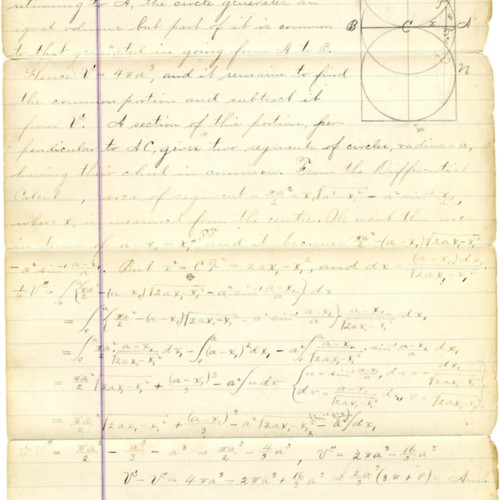 returning to A, the circle generates an
equal volume but part of it is common
to that generated in going from A to B.
Hence V' = 4πa³, and it remains to find
the common portion and subtract it
from V'. A section of this portion, per-
pendicular to AC, gives two segments of circles, radius = a,
having their chord in common. From the Differential
Calculus, area of segment = πa²/2 - x₁√(a²-x₁²) - a² sin⁻¹ x₁/a,
where x₁ is measured from the centre. We want this area
in terms of a-x₁ = and it becomes πa²/2 - (a-x₁)√(2ax₁-x₁²)
- a² sin⁻¹ (a-x₁)/a. But x² = = 2ax₁-x₁², and dx = (a-x₁)dx₁/√(2ax₁-x₁²)
¼V'' = ∫{πa²/2 - (a-x₁)√(2ax₁-x₁²) - a² sin⁻¹ (a-x₁)/a} dx
= ∫₀ᵃ{πa²/2 - (a-x₁)√(2ax₁-x₁²) - a² sin⁻¹ (a-x₁)/a} (a-x₁)/√(2ax₁-x₁²) dx₁
= ∫₀ᵃ πa²/2 (a-x₁)/√(2ax₁-x₁²) dx₁ - ∫₀ᵃ(a-x₁)² dx₁ - a²∫₀ᵃ (a-x₁)/√(2ax₁-x₁²) sin⁻¹ (a-x₁)/a dx₁
= πa²/2 √(2ax₁-x₁²) + (a-x₁)³/3 - a²∫u dv {u = sin⁻¹ (a-x₁)/a, du = - dx₁/√(2ax₁-x₁²)
dv = (a-x₁)/√(2ax₁-x₁²) dx₁, v = √(2ax₁-x₁²)
= πa²/2 √(2ax₁-x₁²) + (a-x₁)³/3 - a²√(2ax₁-x₁²) - a²∫dx₁
V'' = πa³/2 - a³/3 - a³ = πa³/2 - 4/3 a³, V'' = 2πa³ - 16/3 a³
V' - V'' = 4πa³ - 2πa³ + 16/3 a³ = 2a³/3 (3π + 8) = Ans.
B C E A
N